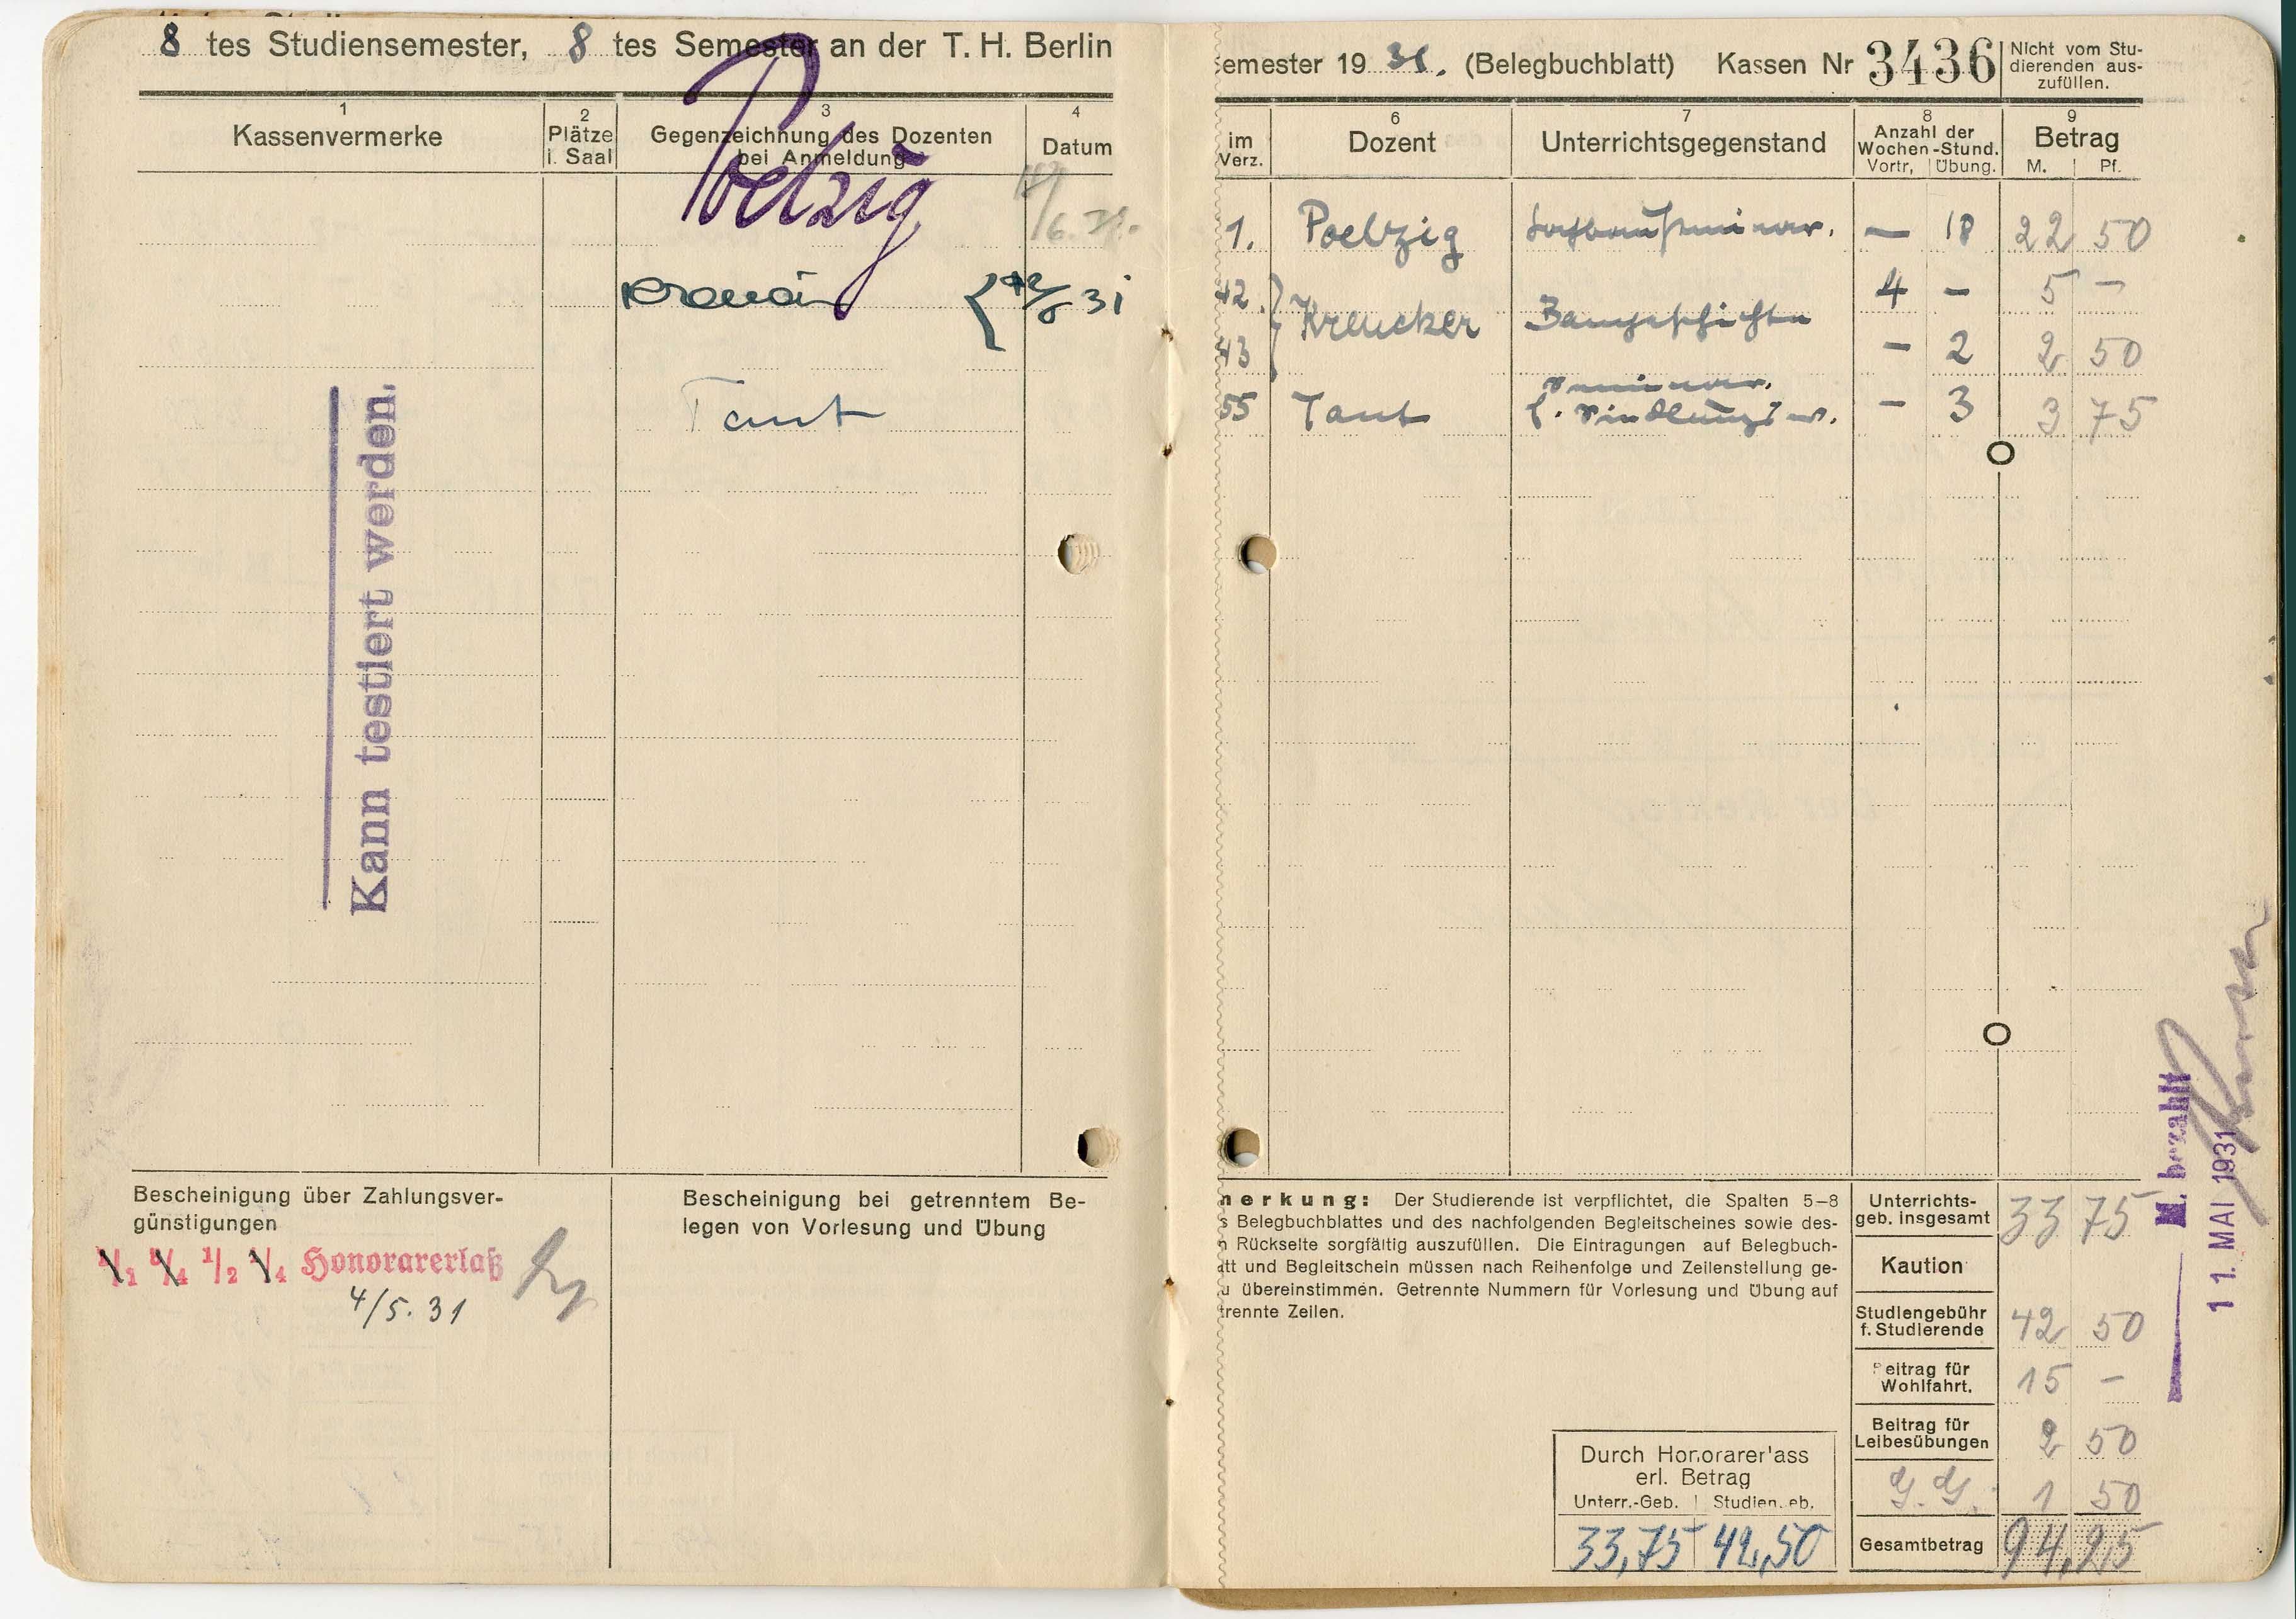 8 tes Studiensemester, 8 tes Semester an der T. H. Berlin
1
Kassenvermerke
2
Plätze
i. Saal
3
Gegenzeichnung des Dozenten
bei Anmeldung
4
Datum
Poelzig
6. 31.
31
Taut
Kann testiert werden.
Bescheinigung über Zahlungsver-
günstigungen
1/1 3/4 1/2 1/4 Honorarerlaß
4/5. 31
Bescheinigung bei getrenntem Be-
legen von Vorlesung und Übung
emester 19 31. (Belegbuchblatt) Kassen Nr 3436
Nicht vom Stu-
dierenden aus-
zufüllen.
im
Verz.
6
Dozent
7
Unterrichtsgegenstand
8
Anzahl der
Wochen-Stund.
Vortr, Übung.
9
Betrag
M. Pf.
1. Poelzig Hochbauseminar. — 18 22 50
42. Krencker Baugeschichte 4 — 5 —
43 — 2 2 50
55 Taut Seminar. — 3 3 75
f. Siedlungsw.
merkung: Der Studierende ist verpflichtet, die Spalten 5–8
s Belegbuchblattes und des nachfolgenden Begleitscheines sowie des-
n Rückseite sorgfältig auszufüllen. Die Eintragungen auf Belegbuch-
tt und Begleitschein müssen nach Reihenfolge und Zeilenstellung ge-
u übereinstimmen. Getrennte Nummern für Vorlesung und Übung auf
trennte Zeilen.
Unterrichts-
geb. insgesamt 33 75
Kaution
Studiengebühr
f. Studierende 42 50
Beitrag für
Wohlfahrt. 15 —
Beitrag für
Leibesübungen 2 50
1 50
Gesamtbetrag 94,25
Durch Honorarer'ass
erl. Betrag
Unterr.-Geb. Studien. eb.
33,75 42,50
M. bezahlt
11. MAI 1931